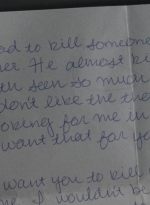 ad to kill someone
er. He almost ki
en seen so much
don't like the the
oking for me in
want that for yo
want you to kill
I wouldn't be